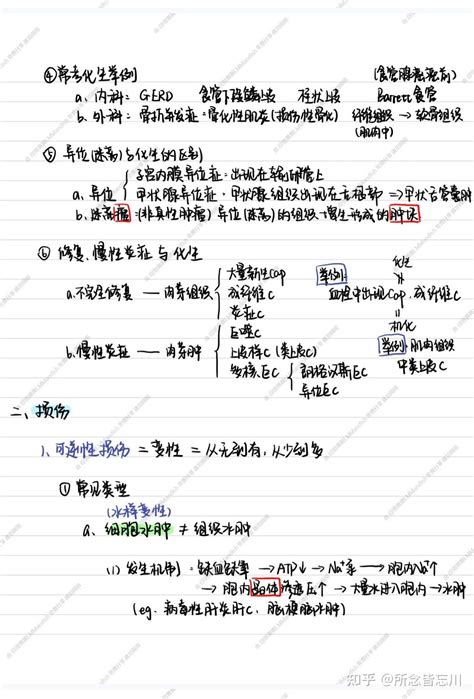 ④常考化生举例 (食管腺癌癌前)
a、内科：GERD 食管下段鳞上皮 柱状上皮 Barrett食管
b、外科：骨折并发症=骨化性肌炎(损伤性骨化) 纤维组织→软骨组织
(肌肉中)
⑤异位(迷离)与化生的区别
子宫内膜异位症：出现在
a、异位 甲状腺异位症：甲状腺组织出现在舌根部 ⇒甲状舌管囊肿
b、迷离瘤=(非真性肿瘤)异位(迷离)的组织增生形成的肿块
⑥修复、慢性炎症与化生
a.不完全修复——肉芽组织 大量新生Cap 举例 化生
成纤维C 血栓中出现Cap、成纤维C
炎症C
机化
b.慢性炎症——肉芽肿 巨噬C 举例：肌肉组织
上皮样C(类上皮C)
多核巨C 朗格汉斯巨C
异位巨C
二、损伤
1、可逆性损伤=变性=从无到有,从少到多
①常见类型
(水样变性)
a、细胞水肿≠组织水肿
(1)发生机制：缺血缺氧→ATP↓→Na⁺泵→胞内Na⁺↑
→胞内晶体渗透压↑→大量水进入胞内→水肿
(eg.病毒性肝炎肝C、脑梗脑水肿)
知乎 @所念皆忘川